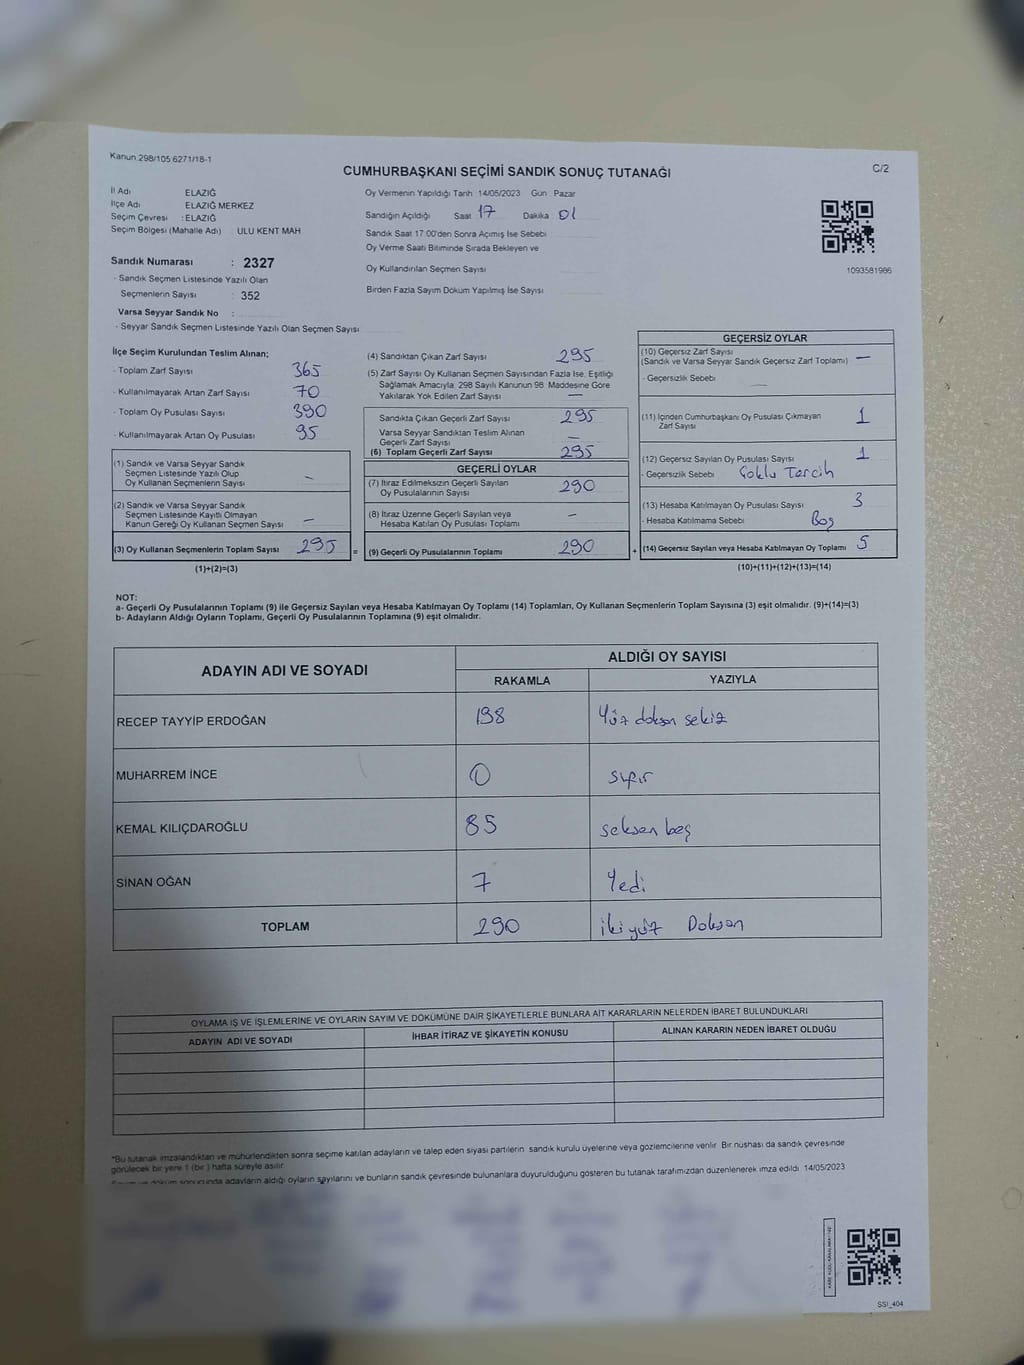 Kanun 298/105 6271/18-1
CUMHURBAŞKANI SEÇİMİ SANDIK SONUÇ TUTANAĞI
C/2
İl Adı ELAZIĞ
İlçe Adı ELAZIĞ MERKEZ
Seçim Çevresi : ELAZIĞ
Seçim Bölgesi (Mahalle Adı) ULU KENT MAH
Oy Vermenin Yapıldığı Tarih 14/05/2023 Gün Pazar
Sandığın Açıldığı Saat 17 Dakika 01
Sandık Saat 17 00'den Sonra Açımış İse Sebebi
Oy Verme Saati Bitiminde Sırada Bekleyen ve
Oy Kullandırılan Seçmen Sayısı
Birden Fazla Sayım Döküm Yapılmış İse Sayısı
1093581986
Sandık Numarası : 2327
- Sandık Seçmen Listesinde Yazılı Olan
Seçmenlerin Sayısı : 352
Varsa Seyyar Sandık No :
- Seyyar Sandık Seçmen Listesinde Yazılı Olan Seçmen Sayısı
İlçe Seçim Kurulundan Teslim Alınan;
- Toplam Zarf Sayısı 365
- Kullanılmayarak Artan Zarf Sayısı 70
- Toplam Oy Pusulası Sayısı 390
- Kullanılmayarak Artan Oy Pusulası 95
(1) Sandık ve Varsa Seyyar Sandık
Seçmen Listesinde Yazılı Olup
Oy Kullanan Seçmenlerin Sayısı –
(2) Sandık ve Varsa Seyyar Sandık
Seçmen Listesinde Kayıtlı Olmayan
Kanun Gereği Oy Kullanan Seçmen Sayısı –
(3) Oy Kullanan Seçmenlerin Toplam Sayısı 295 =
(1)+(2)=(3)
(4) Sandıktan Çıkan Zarf Sayısı 295
(5) Zarf Sayısı Oy Kullanan Seçmen Sayısından Fazla İse, Eşitliği
Sağlamak Amacıyla, 298 Sayılı Kanunun 98. Maddesine Göre
Yakılarak Yok Edilen Zarf Sayısı –
Sandıkta Çıkan Geçerli Zarf Sayısı 295
Varsa Seyyar Sandıktan Teslim Alınan
Geçerli Zarf Sayısı –
(6) Toplam Geçerli Zarf Sayısı 295
GEÇERLİ OYLAR
(7) İtiraz Edilmeksizin Geçerli Sayılan
Oy Pusulalarının Sayısı 290
(8) İtiraz Üzerine Geçerli Sayılan veya
Hesaba Katılan Oy Pusulası Toplamı –
(9) Geçerli Oy Pusulalarının Toplamı 290 +
GEÇERSİZ OYLAR
(10) Geçersiz Zarf Sayısı
(Sandık ve Varsa Seyyar Sandık Geçersiz Zarf Toplamı) –
- Geçersizlik Sebebi –
(11) İçinden Cumhurbaşkanı Oy Pusulası Çıkmayan
Zarf Sayısı 1
(12) Geçersiz Sayılan Oy Pusulası Sayısı 1
- Geçersizlik Sebebi Çoklu Tercih
(13) Hesaba Katılmayan Oy Pusulası Sayısı 3
- Hesaba Katılmama Sebebi Boş
(14) Geçersiz Sayılan veya Hesaba Katılmayan Oy Toplamı 5
(10)+(11)+(12)+(13)=(14)
NOT:
a- Geçerli Oy Pusulalarının Toplamı (9) ile Geçersiz Sayılan veya Hesaba Katılmayan Oy Toplamı (14) Toplamları, Oy Kullanan Seçmenlerin Toplam Sayısına (3) eşit olmalıdır. (9)+(14)=(3)
b- Adayların Aldığı Oyların Toplamı, Geçerli Oy Pusulalarının Toplamına (9) eşit olmalıdır.
ADAYIN ADI VE SOYADI
ALDIĞI OY SAYISI
RAKAMLA YAZIYLA
RECEP TAYYİP ERDOĞAN 198 Yüz doksan sekiz
MUHARREM İNCE 0 sıfır
KEMAL KILIÇDAROĞLU 85 seksen beş
SİNAN OĞAN 7 Yedi
TOPLAM 290 ikiyüz Doksan
OYLAMA İŞ VE İŞLEMLERİNE VE OYLARIN SAYIM VE DÖKÜMÜNE DAİR ŞİKAYETLERLE BUNLARA AİT KARARLARIN NELERDEN İBARET BULUNDUKLARI
ADAYIN ADI VE SOYADI İHBAR İTİRAZ VE ŞİKAYETİN KONUSU ALINAN KARARIN NEDEN İBARET OLDUĞU
*Bu tutanak imzalandıktan ve mühürlendikten sonra seçime katılan adayların ve talep eden siyasi partilerin sandık kurulu üyelerine veya gözlemcilerine verilir Bir nüshası da sandık çevresinde
görülecek bir yere 1 (bir) hafta süreyle asılır
Sayım ve döküm sonucunda adayların aldığı oyların sayılarını ve bunların sandık çevresinde bulunanlara duyurulduğunu gösteren bu tutanak tarafımızdan düzenlenerek imza edildi 14/05/2023
SSI_404